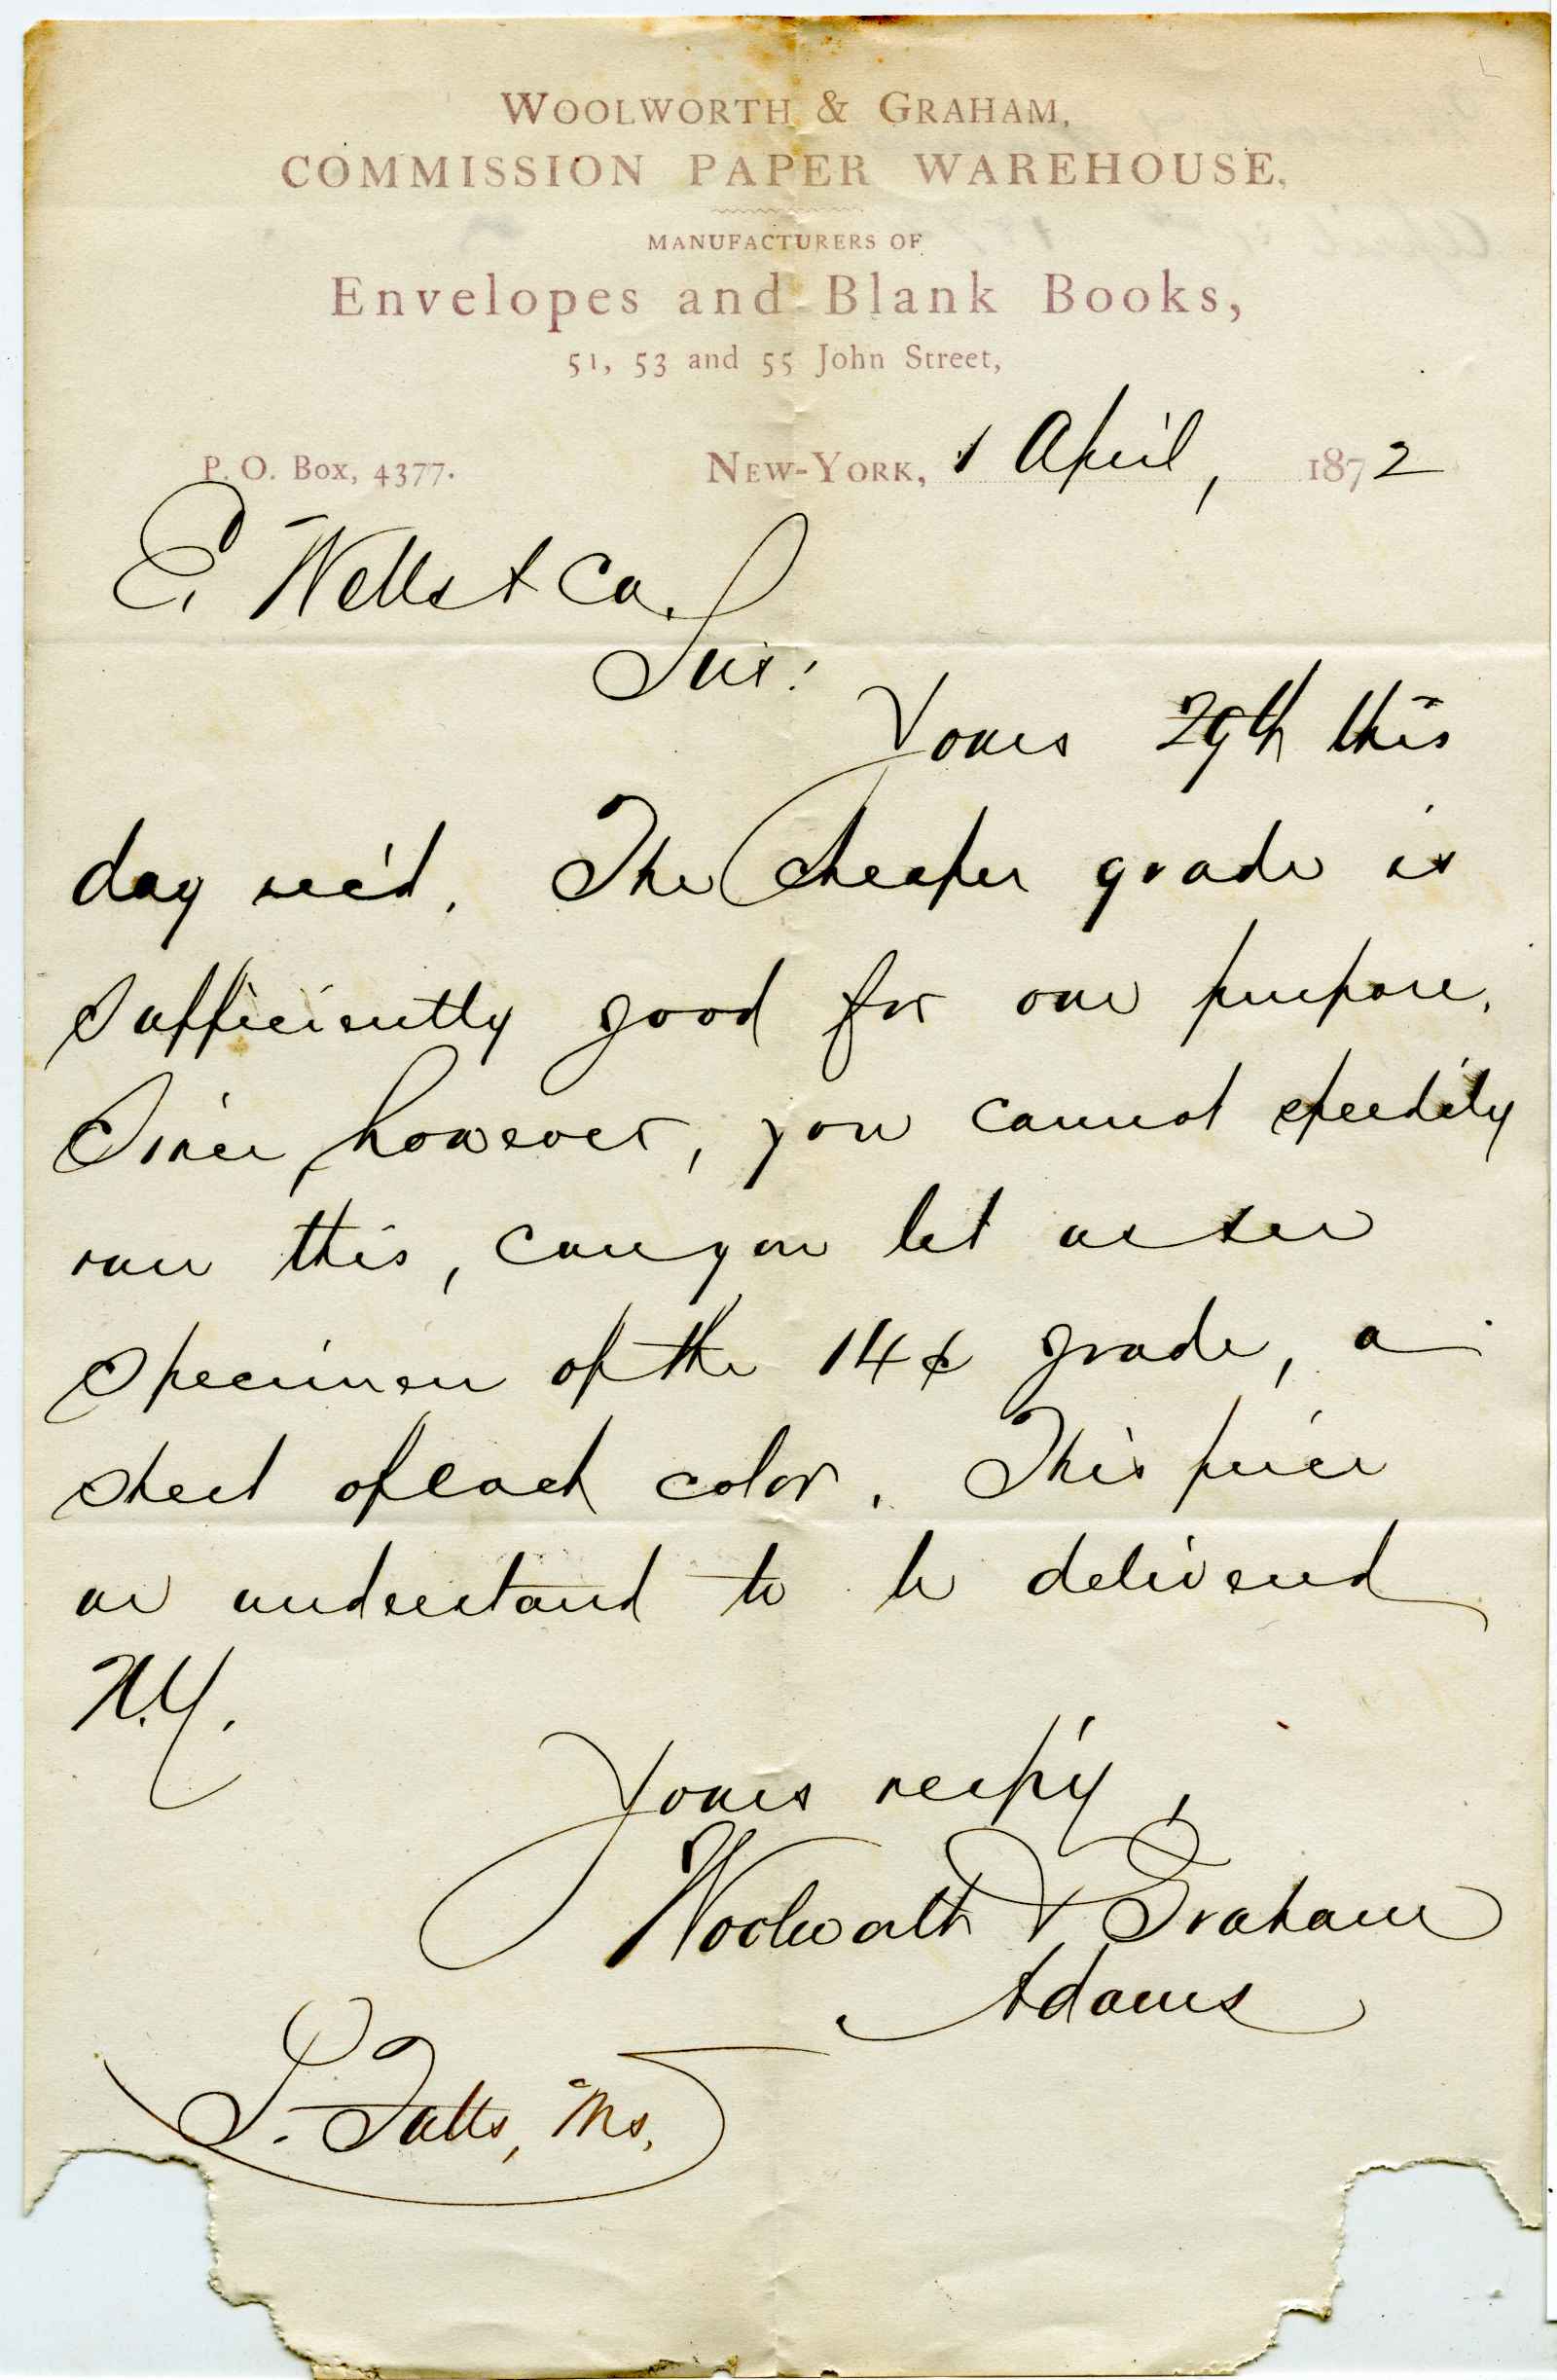 WOOLWORTH & GRAHAM,
COMMISSION PAPER WAREHOUSE,
MANUFACTURERS OF
Envelopes and Blank Books,
51, 53 and 55 John Street,
P. O. Box, 4377. NEW-YORK, 1 April, 1872
E. Wells & Co.
Sirs:
Yours 29th this
day rec'd. The Cheaper grade is
sufficiently good for our purpose.
Since, however, you cannot speedily
run this, can you let us see
specimen of the 14¢ grade, a
sheet of each color. This price
we understand to be delivered
N.Y.
Yours resp'y,
Woolworth & Graham
Adams
S. Falls, Ms.